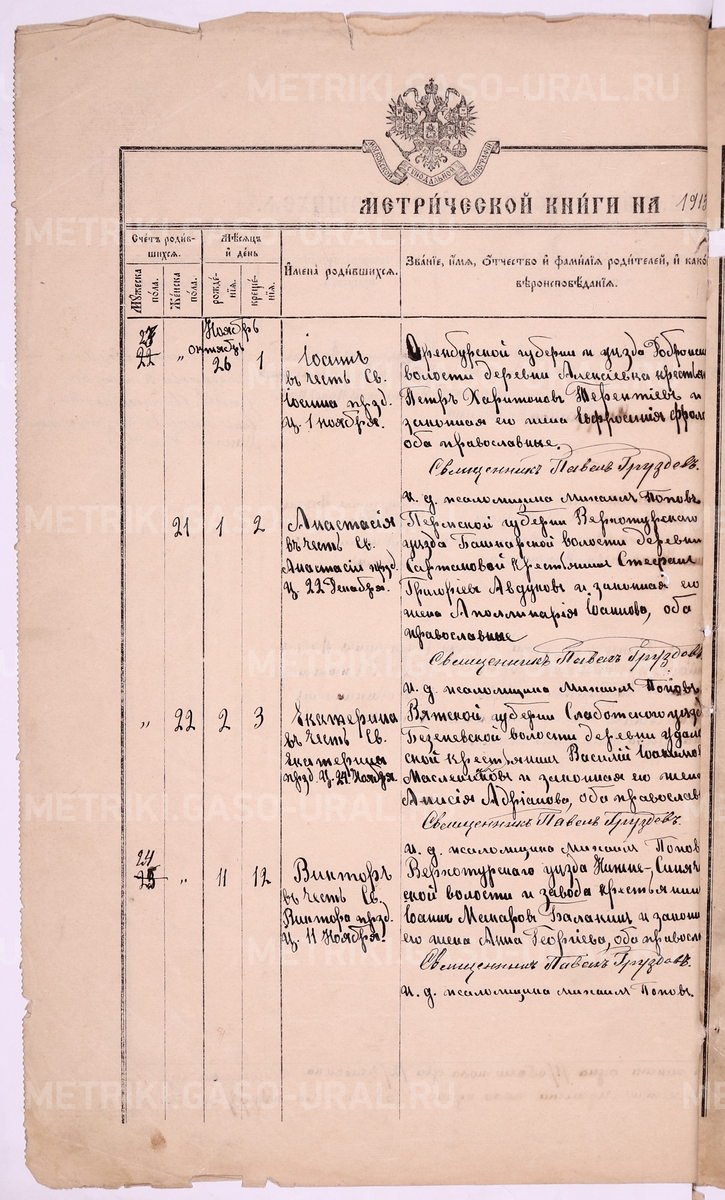 МЕТРИ́ЧЕСКОЙ КНИ́ГИ НА 1913
Счетъ роди́в-
шихся.
Мꙋ́жеска
по́ла.
Же́нска
по́ла.
Мѣ́сяцъ
и҆ де́нь
рожде́-
нїя.
креще́-
нїя.
И҆мена̀ роди́вшихся.
Зва́нїе, и҆́мя, Ѻ҆́тчество и҆ фами́лїя роди́телей, и҆ како
вѣроисповѣ́данїя.
23
22
"
Ноябрь
октябрь
26
1
Іоаннъ
въ честь Св.
Іоанна празд.
Ц. 1 ноября.
Оренбурской губерніи и уѣзда
волости деревни Алексіевка кресть
Петръ Харитоновъ Терентіев и
законная его жена Евфросинія Фрол
оба православные.
Священникъ Павелъ Груздевъ.
И. д. псаломщика Михаилъ Поповъ
21
1
2
Анастасія
въ честь Св.
Анастасіи празд.
Ц. 22 Декабря.
Пермской губерніи Верхотурскаго
уѣзда Башкарской волости деревни
крестьянинъ Стефанъ
Григоріев Авдуковъ и законная его
жена Аполлинарія Іоаннова, оба
православные
Священникъ Павелъ Груздевъ
И. д. псаломщика Михаилъ Поповъ
"
22
2
3
Екатерина
въ честь Св.
Екатерины
празд. Ц. 24 Ноября
Вятской губерніи Слаботского уѣзд
волости деревни
ской крестьянинъ Василій
и законная его жен
Анисія Адріанова, оба православ
Священникъ Павелъ Груздевъ.
И. д. псаломщика Михаилъ Попов
24
23
"
11
12
Викторъ
въ честь Св.
Виктора празд.
Ц. 11 Ноября.
Верхотурскаго уѣзда Нижне-Синяч
ской волости и завода крестьянин
Іоаннъ Макаровъ Балакинъ и законн
его жена Анна Георгіева, оба правосл
Священникъ Павелъ Груздевъ.
И. д. псаломщика Михаилъ Поповъ.
METRIKI.GASO-URAL.RU